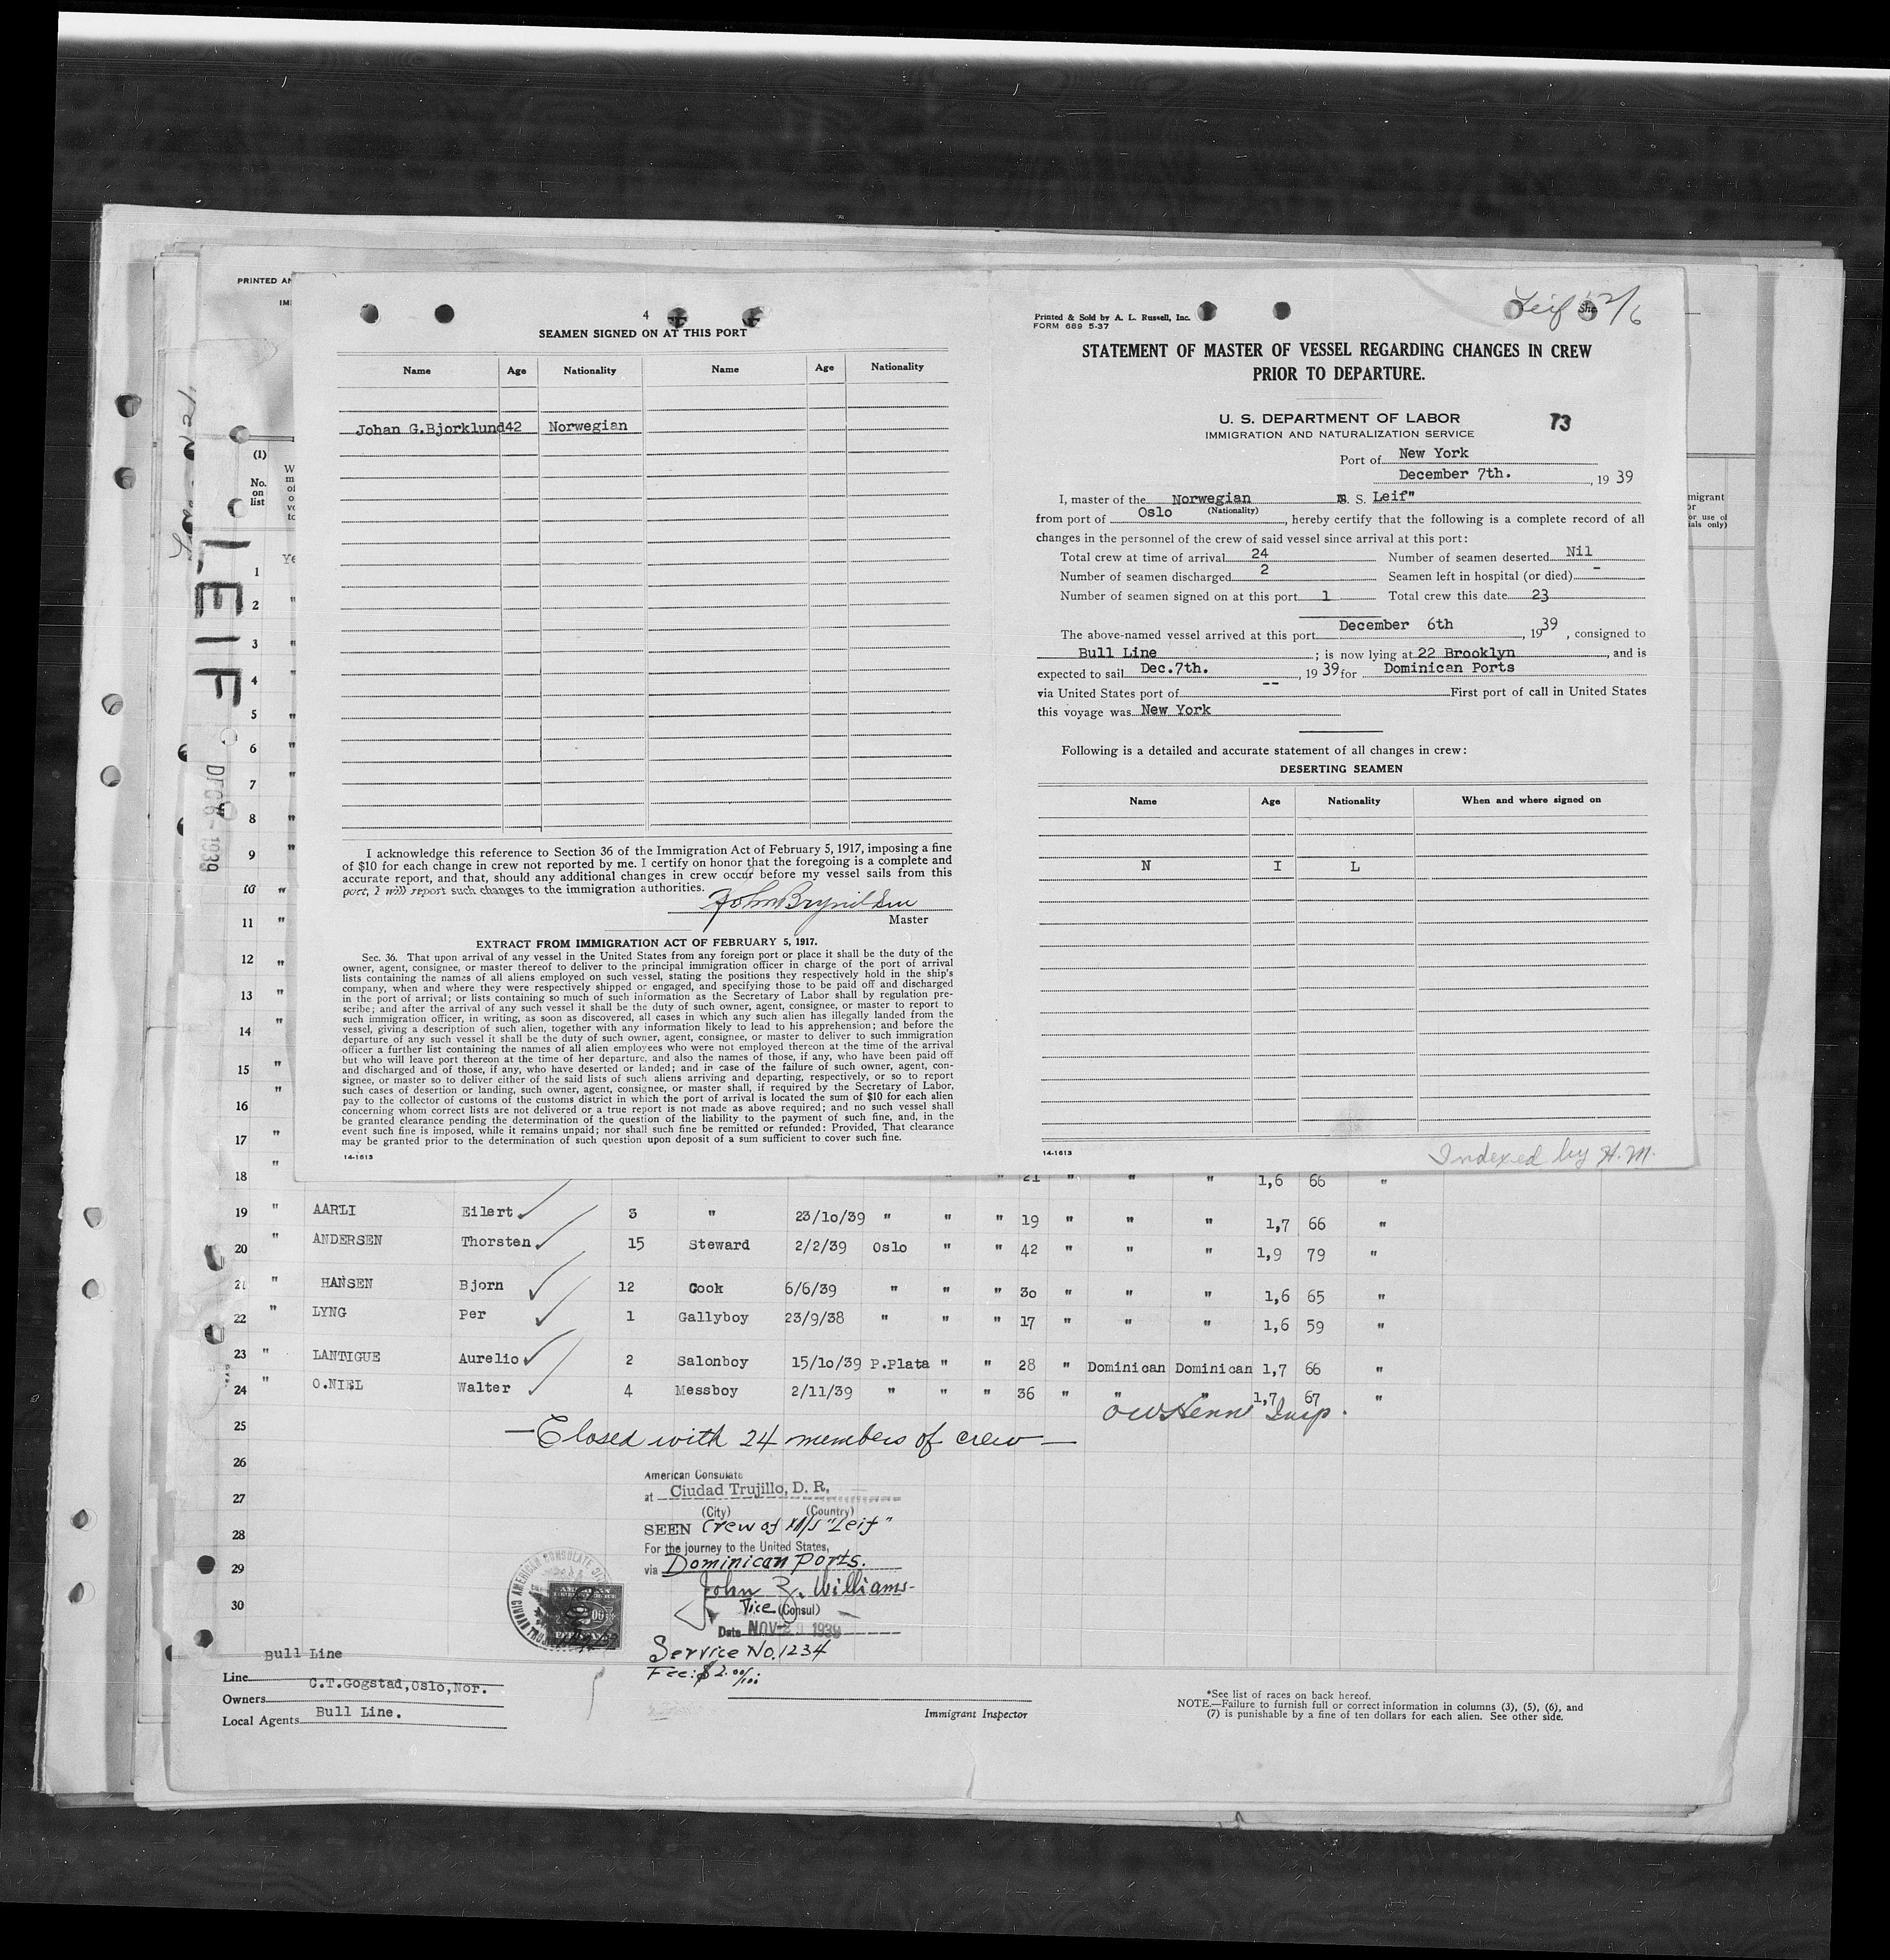 PRINTED AN
IMI
4
SEAMEN SIGNED ON AT THIS PORT
Name Age Nationality Name Age Nationality
Johan G.Bjorklund 42 Norwegian
I acknowledge this reference to Section 36 of the Immigration Act of February 5, 1917, imposing a fine
of $10 for each change in crew not reported by me. I certify on honor that the foregoing is a complete and
accurate report, and that, should any additional changes in crew occur before my vessel sails from this
port, I will report such changes to the immigration authorities.
Master
EXTRACT FROM IMMIGRATION ACT OF FEBRUARY 5, 1917.
Sec. 36. That upon arrival of any vessel in the United States from any foreign port or place it shall be the duty of the
owner, agent, consignee, or master thereof to deliver to the principal immigration officer in charge of the port of arrival
lists containing the names of all aliens employed on such vessel, stating the positions they respectively hold in the ship's
company, when and where they were respectively shipped or engaged, and specifying those to be paid off and discharged
in the port of arrival; or lists containing so much of such information as the Secretary of Labor shall by regulation pre-
scribe; and after the arrival of any such vessel it shall be the duty of such owner, agent, consignee, or master to report to
such immigration officer, in writing, as soon as discovered, all cases in which any such alien has illegally landed from the
vessel, giving a description of such alien, together with any information likely to lead to his apprehension; and before the
departure of any such vessel it shall be the duty of such owner, agent, consignee, or master to deliver to such immigration
officer a further list containing the names of all alien employees who were not employed thereon at the time of the arrival
but who will leave port thereon at the time of her departure, and also the names of those, if any, who have been paid off
and discharged and of those, if any, who have deserted or landed; and in case of the failure of such owner, agent, con-
signee, or master so to deliver either of the said lists of such aliens arriving and departing, respectively, or so to report
such cases of desertion or landing, such owner, agent, consignee, or master shall, if required by the Secretary of Labor,
pay to the collector of customs of the customs district in which the port of arrival is located the sum of $10 for each alien
concerning whom correct lists are not delivered or a true report is not made as above required; and no such vessel shall
be granted clearance pending the determination of the question of the liability to the payment of such fine, and, in the
event such fine is imposed, while it remains unpaid; nor shall such fine be remitted or refunded: Provided, That clearance
may be granted prior to the determination of such question upon deposit of a sum sufficient to cover such fine.
14-1613
Leif 12/6
Printed & Sold by A. L. Russell, Inc.
FORM 689 5-37
STATEMENT OF MASTER OF VESSEL REGARDING CHANGES IN CREW
PRIOR TO DEPARTURE.
U. S. DEPARTMENT OF LABOR 73
IMMIGRATION AND NATURALIZATION SERVICE
Port of New York
December 7th. , 19 39
I, master of the Norwegian S. Leif"
(Nationality)
from port of Oslo , hereby certify that the following is a complete record of all
changes in the personnel of the crew of said vessel since arrival at this port:
Total crew at time of arrival 24 Number of seamen deserted Nil
Number of seamen discharged 2 Seamen left in hospital (or died) -
Number of seamen signed on at this port 1 Total crew this date 23
The above-named vessel arrived at this port December 6th , 19 39 , consigned to
Bull Line ; is now lying at 22 Brooklyn , and is
expected to sail Dec.7th. , 19 39 for Dominican Ports
via United States port of -- First port of call in United States
this voyage was New York
Following is a detailed and accurate statement of all changes in crew:
DESERTING SEAMEN
Name Age Nationality When and where signed on
N I L
14-1613
Indexed by H.M.
(1)
No.
on
list
migrant
or
or use of
ials only)
LEIF
DEC 6 - 1939
1 Ye
2 "
3 "
4 "
5 "
6 "
7 "
8 "
9 "
10 "
11 "
12 "
13 "
14 "
15 "
16 "
17 "
18 " " 21 " " " 1,6 66 "
19 " AARLI Eilert 3 " 23/10/39 " " " 19 " " " 1,7 66 "
20 " ANDERSEN Thorsten 15 Steward 2/2/39 Oslo " " 42 " " " 1,9 79 "
21 " HANSEN Bjorn 12 Cook 6/6/39 " " " 30 " " " 1,6 65 "
22 " LYNG Per 1 Gallyboy 23/9/38 " " " 17 " " " 1,6 59 "
23 " LANTIGUE Aurelio 2 Salonboy 15/10/39 P.Plata " " 28 " Dominican Dominican 1,7 66 "
24 " O.NIEL Walter 4 Messboy 2/11/39 " " " 36 " " " 1,7 67 "
25
Insp.
—Closed with 24 members of crew—
26
27
28
29
30
American Consulate
at Ciudad Trujillo, D. R.
(City) (Country)
SEEN Crew of M/S "Leif"
For the journey to the United States,
via Dominican Ports.
John Z. Williams
Vice (Consul)
Date NOV 1939
Service No. 1234
Fee: $2.00/100
Line Bull Line
Owners C.T.Gogstad,Oslo,Nor.
Local Agents Bull Line.
Immigrant Inspector
*See list of races on back hereof.
NOTE.—Failure to furnish full or correct information in columns (3), (5), (6), and
(7) is punishable by a fine of ten dollars for each alien. See other side.